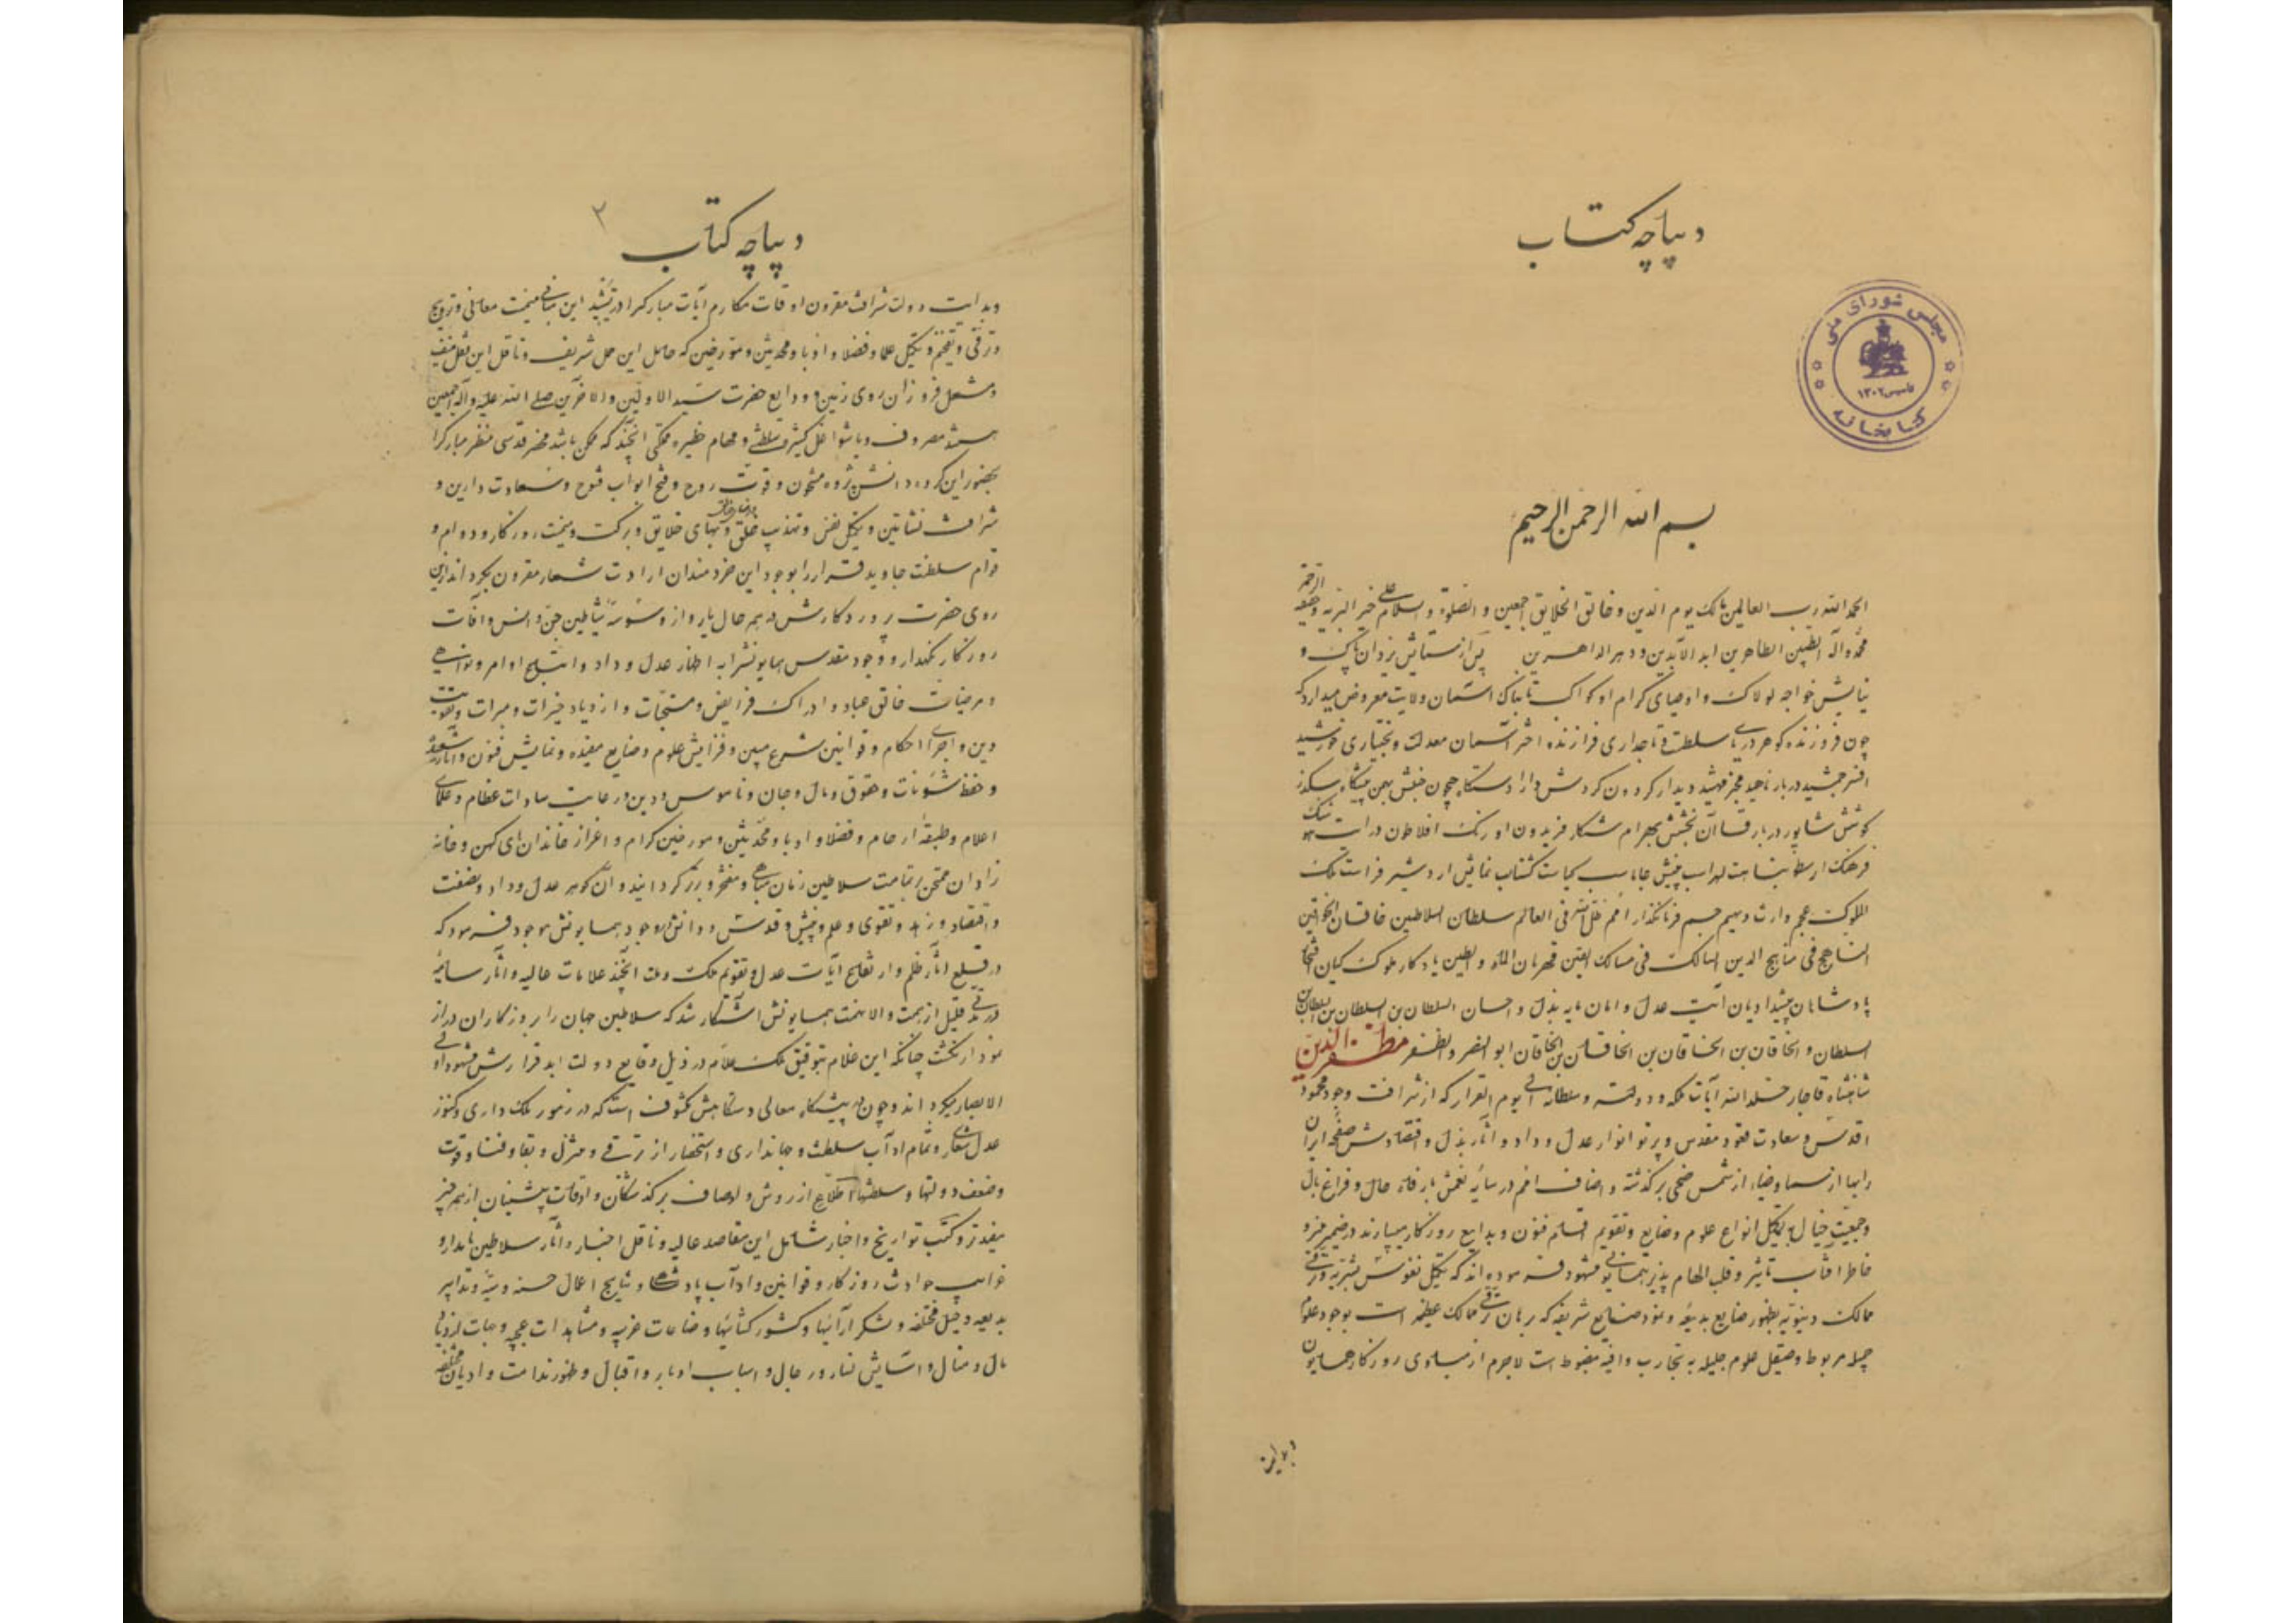 دیباچه کتاب
مجلس شورای ملی
تاسیس ۱۳۰۲
کتابخانه
بسم الله الرحمن الرحیم
الحمد لله رب العالمین مالک یوم الدین و خالق الخلایق اجمعین و الصلوة و السلام علی خیر البریه
محمد و آله الطیبین الطاهرین ابد الآبدین و دهر الداهرین پس از ستایش یزدان پاک و
نیایش خواجه لولاک و اوصیای کرام او کواکب تابناک آسمان ولایت معروض میدارد که
چون فروزنده کوهر دریای سلطنت و تاجداری فرازنده اختر آسمان معدلت و بختیاری خورشید
افسر جمشید دربار ناهید دیدار کردون کردش دارا دستگاه
کوشش شاپور دربار قاآن بخشش بهرام شکار فریدون اورنک افلاطون درایت هوشنک
فرهنک ارسطو لهراسب جاماسب کیاست نمایش اردشیر فراست ملک
الملوک عجم وارث دیهیم جم فرمانگذار امم ظل الله فی العالم سلطان السلاطین خاقان الخواقین
الناهج فی مناهج الدین السالک فی مسالک الیقین قهرمان الماء و الطین یادکار ملوک کیان
پادشاهان پیشدادیان آیت عدل و امان مایه بذل و احسان السلطان بن السلطان بن السلطان بن
السلطان و الخاقان بن الخاقان بن الخاقان بن الخاقان ابو النصر و الظفر مظفر الدین
شاهنشاه قاجار خلد الله آیات ملکه و دولته و سلطانه الی یوم القرار که از شرافت وجود محمود
اقدس و سعادت مقدس و پرتو انوار عدل و داد و آثار بذل و اقتصادش صفحه ایران
را بها از سما و ضیاء از شمس ضحی برکذشته و اصناف امم در سایه نعمش با رفاه حال و فراغ بال
و جمعیت خیال به تکمیل انواع علوم و صنایع و تقویم اقسام فنون و بدایع روزکار میسپارند در ضمیر منیر و
خاطر آفتاب تاثیر و قلب الهام پذیر همایونی مشهود فرموده‌اند که تکمیل نفوس بشریه و ترقی
ممالک دنیویه بظهور صنایع بدیعه و نمود صنایع شریفه که برهان ترقی ممالک عظیمه است بوجود علوم
جمیله مربوط و صیقل علوم جلیله به تجارب وافیه مضبوط است لاجرم از مبادی روزکار همایون
دیباچه کتاب
۳
و بدایت دولت شرافت مقرون اوقات مکارم آیات مبارک را در تشیید این مبانی میمنت معانی و ترویج
و ترقی و تفخیم و تکمیل علما و فضلا و ادبا و محدثین و مورخین که حامل این حمل شریف و ناقل این ثقل منیف
و مشعل فروزان روی زمین و ودایع حضرت سید الاولین و الآخرین صلی الله علیه و آله اجمعین
هستند مصروف و با شواغل کثیره سلطنتی و مهام خطیره مملکتی آنچند که ممکن باشد محضر قدسی منظر مبارک را
بحضور این کروه دانش پژوه مشحون و قوت روح و فتح ابواب فتوح و سعادت دارین و
شرافت نشاتین و تکمیل نفس و تهذیب خلق و خلایق و برکت و میمنت روزکار و دوام و
قوام سلطنت جاوید قرار را بوجود این خردمندان ارادت شعار مقرون
روی حضرت پروردکارش در همه حال یار و از وسوسه شیاطین جن و انس و آفات
روزکار نکهدار و وجود مقدس همایونش را به اظهار عدل و داد و اوامر و نواهی
و مرضیات خالق عباد و ادراک فرایض و مستحبات و ازدیاد خیرات و مبرات و تقویت
دین و اجرای احکام و قوانین شرع مبین و فزایش علوم و صنایع مفیده و نمایش فنون و آثار
و حفظ شئونات و حقوق و مال و جان و ناموس و دین و رعایت سادات عظام و علمای
اعلام و طبقه ارحام و فضلا و ادبا و محدثین و مورخین کرام و اعزاز خاندان‌های کهن و خانه
زادان ممتحن بر تمامت سلاطین زمان مباهی و مفتخر و برتر کرداند و آن کوهر عدل و داد و نصفت
و اقتصاد و زهد و تقوی و علم و بینش و قدس و دانش را وجود همایونش موجود فرمود که
در قلع آثار ظلم و ارتفاع آیات عدل و تقویم ملک و ملت آنچند علامات عالیه و آثار سامیه
در مدتی قلیل از همت والا نهمت همایونش آشکار شد که سلاطین جهان را بروزکاران دراز
نمودار نکشت چنانکه این غلام بتوفیق ملک علام در ذیل وقایع دولت ابد قرارش مشهود اولی
الابصار میکرداند و چون در پیشکاه معالی دستکاهش مکشوف است که در رموز ملک داری و کنوز
عدل شعاری و تمام آداب سلطنت و جهانداری و استحضار از ترقی و تنزل و بقا و فنا و قوت
و ضعف دولتها و سلطنتها اطلاع از روش و اوصاف برکذشتکان و اوقات پیشینیان از همه چیز
مفیدتر و کتب تواریخ و اخبار شامل این مقاصد عالیه و ناقل اخبار و آثار سلاطین نامدار و
غرایب حوادث روزکار و قوانین و آداب پادشاهی و نتایج اعمال حسنه و سیئه و تدابیر
بدیعه و حیل مختلفه و لشکر آرائیها و کشور کشائیها و صناعات غریبه و مشاهدات عجیبه و جهات
مال و منال و آسایش نساء و رجال و اسباب ادبار و اقبال و ظهور ندامت و ادیان مختلفه